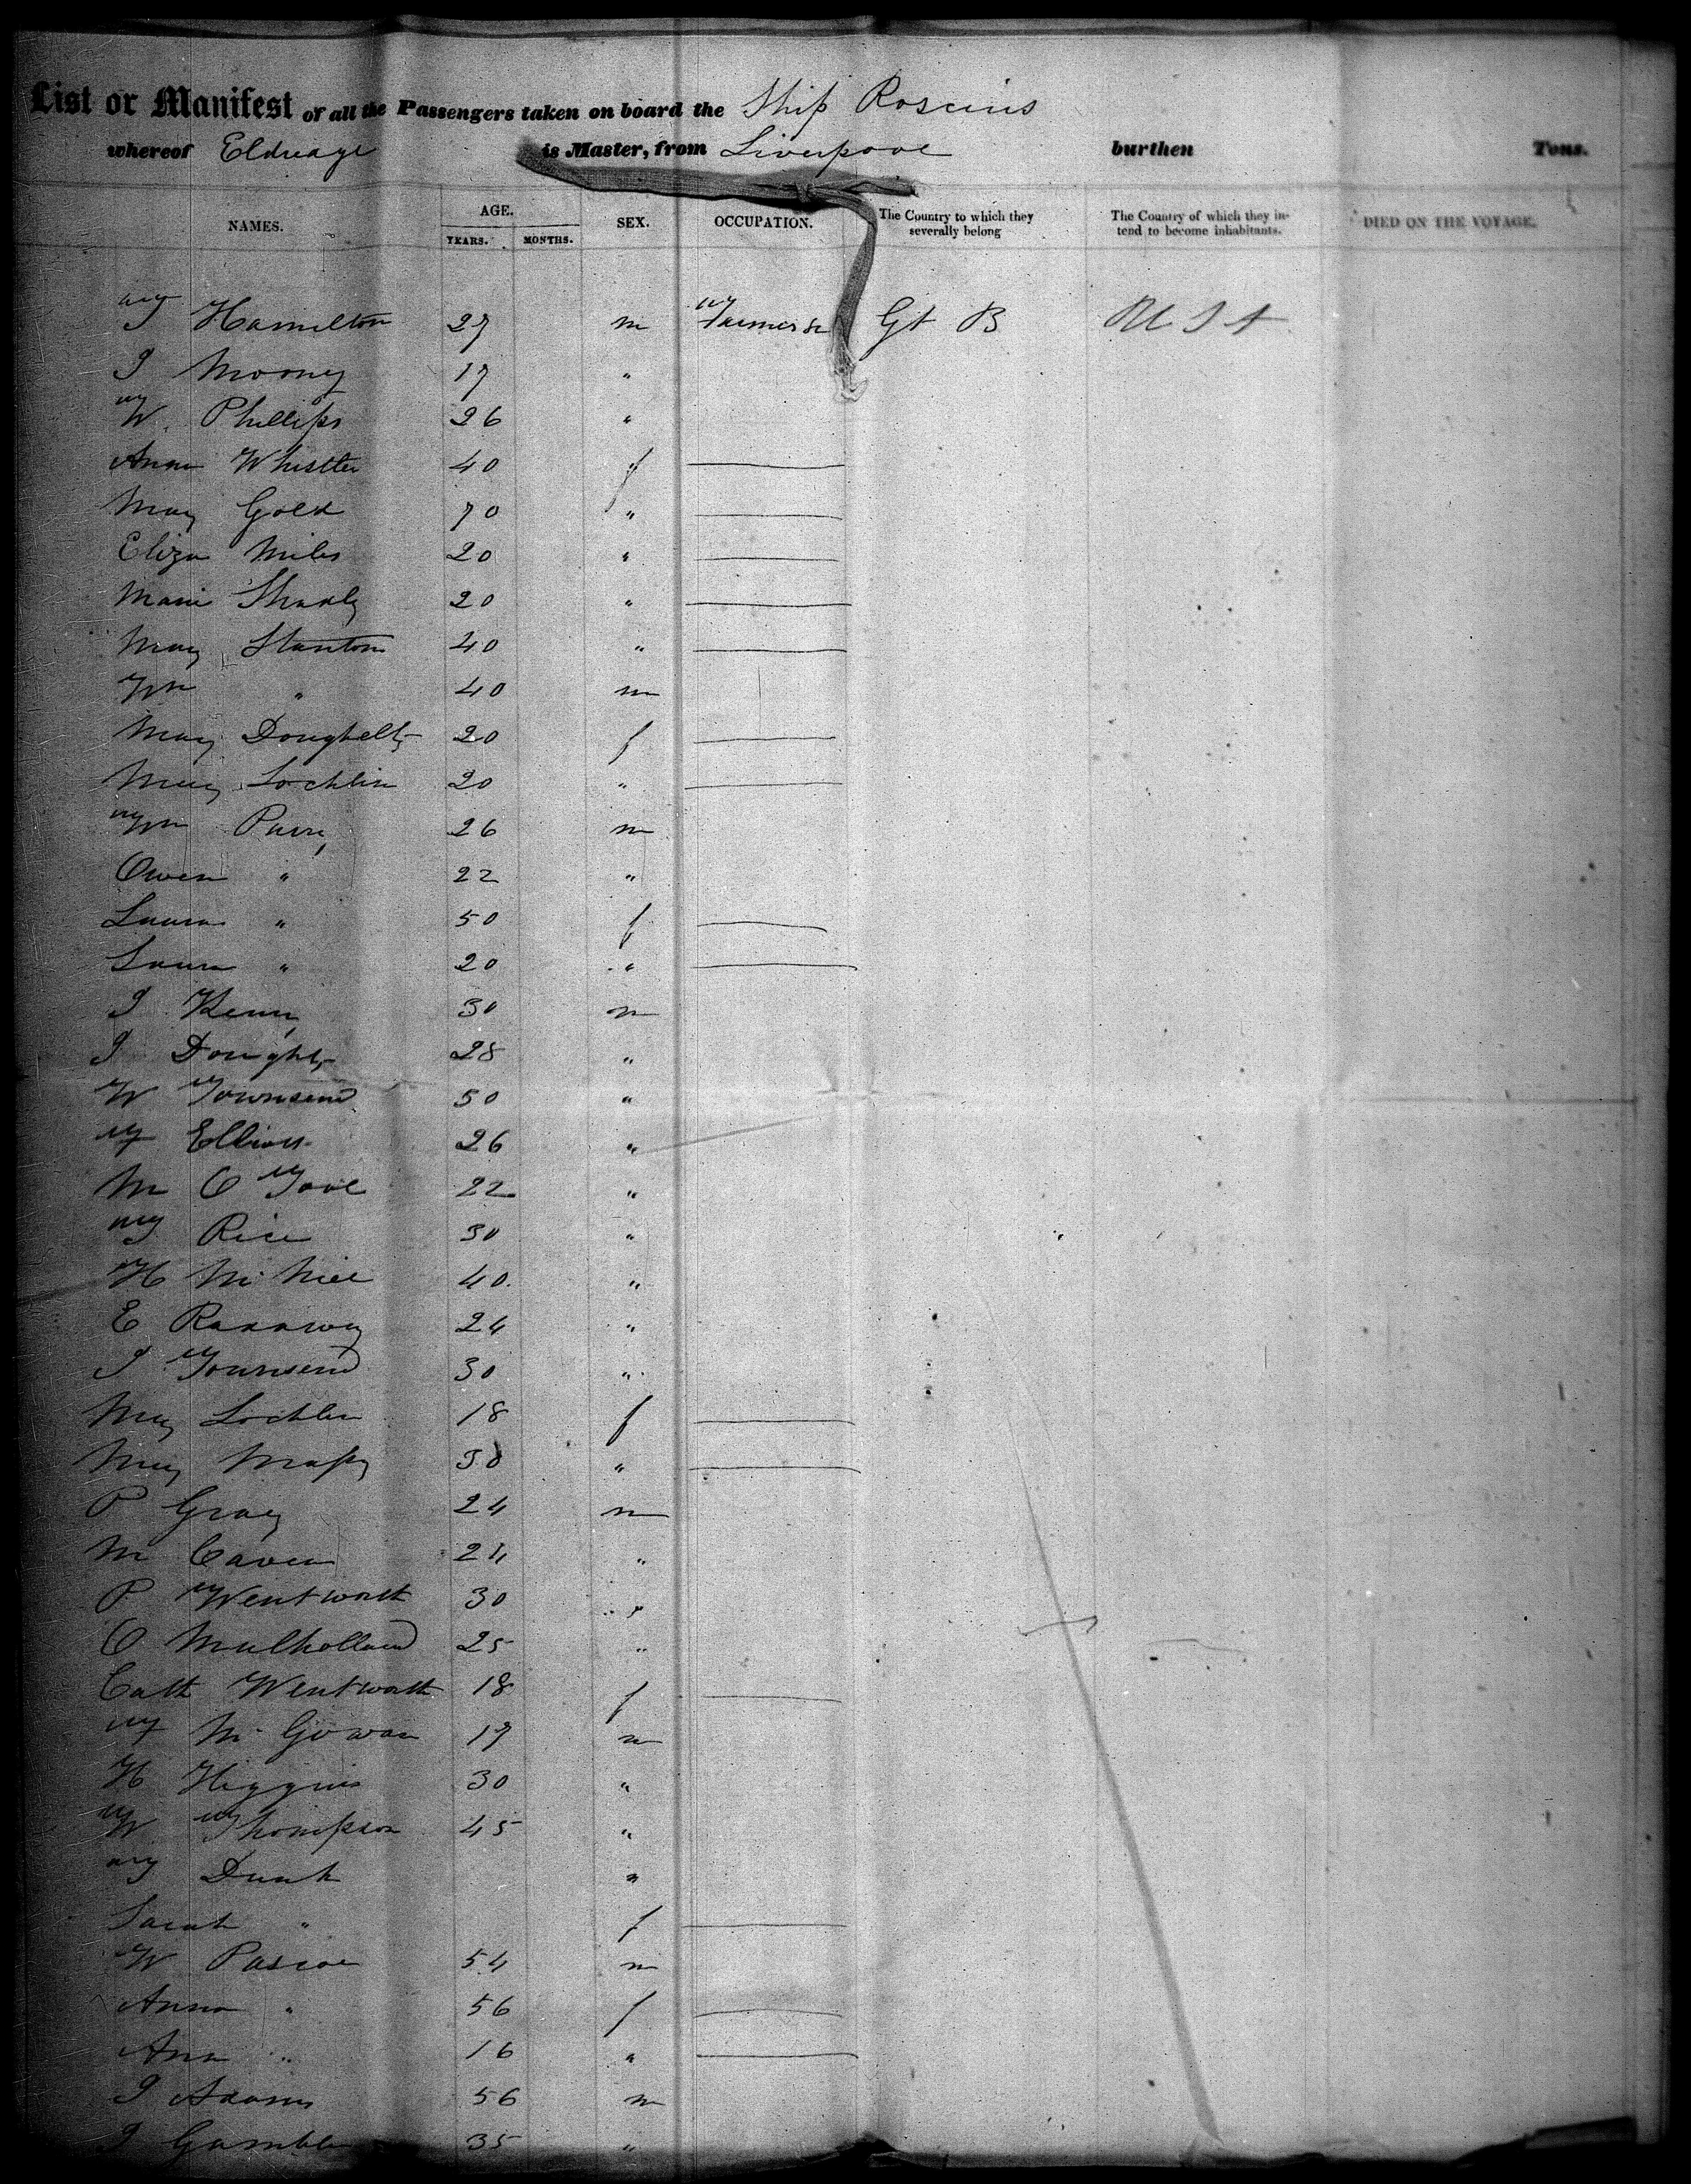 List or Manifest of all the Passengers taken on board the Ship Roscius
whereof Eldredge is Master, from Liverpool burthen Tons.
NAMES. AGE. YEARS. MONTHS. SEX. OCCUPATION. The Country to which they severally belong The Country of which they intend to become inhabitants. DIED ON THE VOYAGE.
Hamilton 27 m Farmers &c Gt B U S A
J Mooney 17 "
W. Phillips 26 "
Ann Whistler 40 f
Mary Gold 70 "
Eliza Miles 20 "
20 "
Mary Stanton 40 "
Wm " 40 m
Mary 20 f
Mary Lochlin 20 "
Wm Parry 26 m
Owen " 22 "
Laura " 50 f
Laura " 20 "
J Kenny 30 m
J 28 "
W Townsend 50 "
Elliott 26 "
M O Tool 22 "
Rice 30 "
H 40 "
E 24 "
J Townsend 30 "
Mary Lochlin 18 f
Mary "
P Gray 24 m
M 24 "
P Wentworth 30 "
O Mulholland 25 "
Cath Wentworth 18 f
Mc Gowan 17 m
H Higgins 30 "
W Thompson 45 "
"
Sarah " f
W Pascoe 54 m
Anna " 56 f
Ann " 16 "
J Adams 56 m
J 35 "